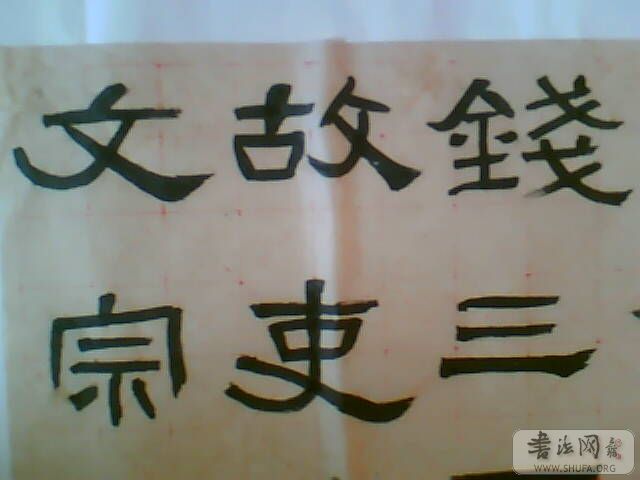 錢三
故吏
文宗
書法网
WWW.SHUFA.ORG